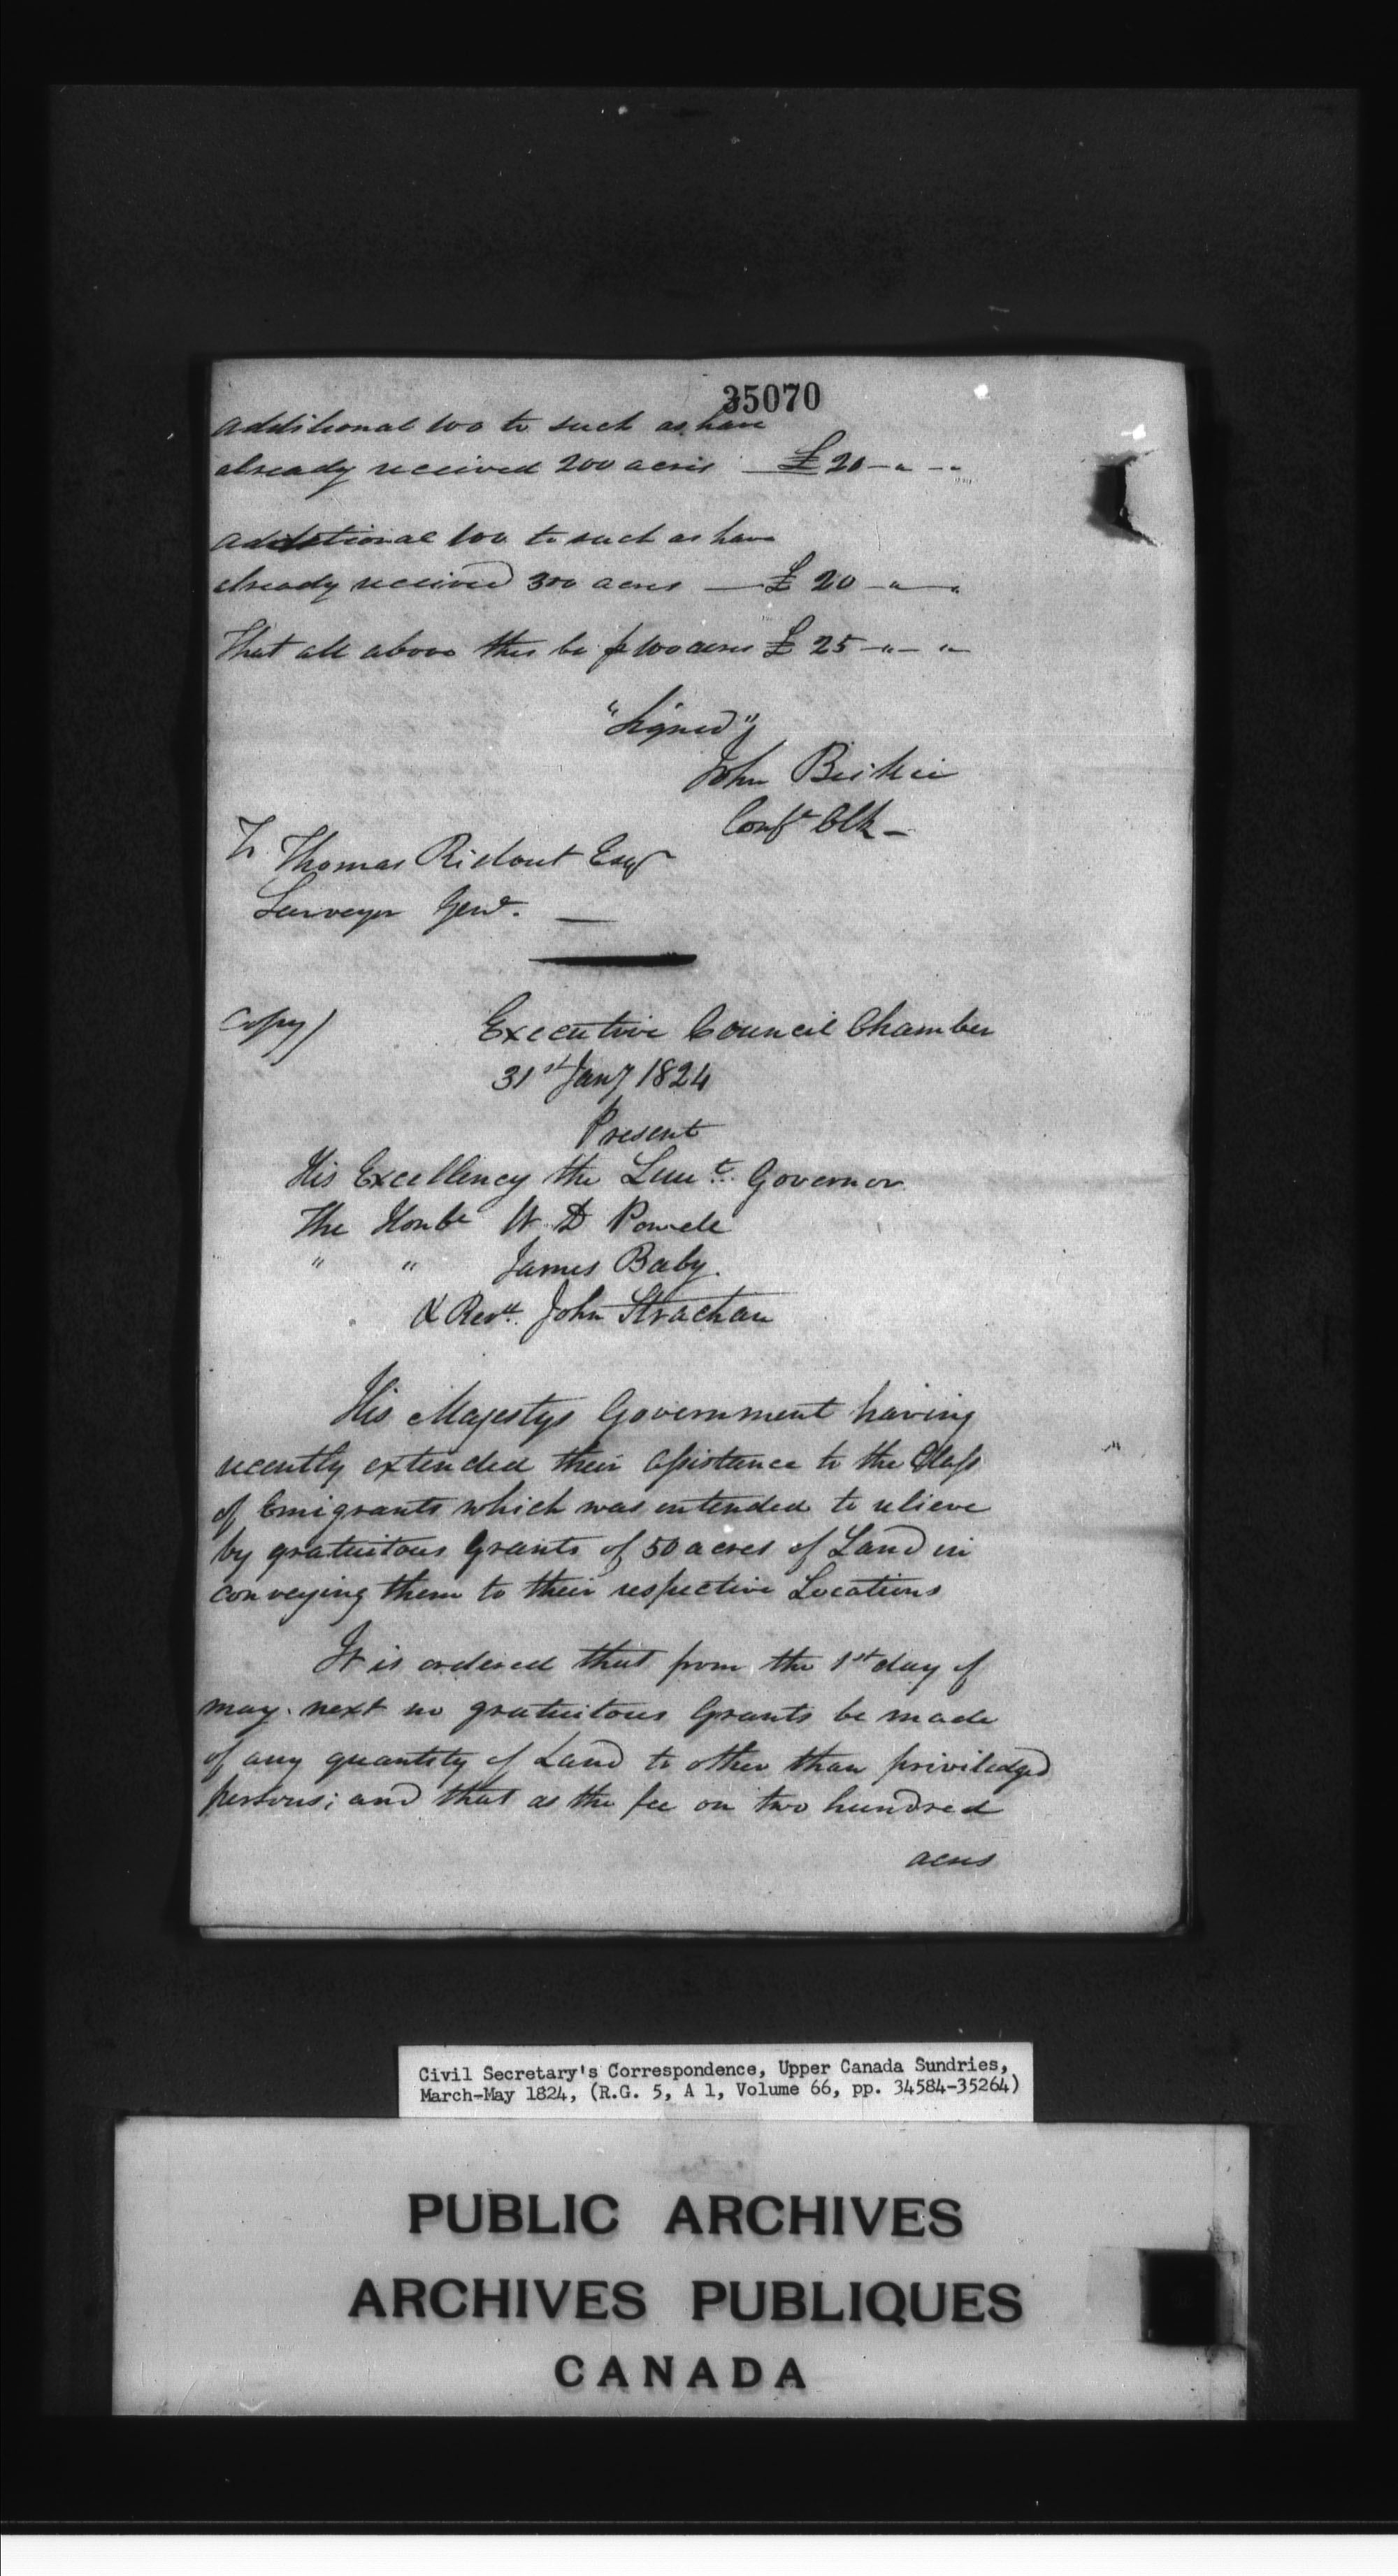 35070
additional 100 to such as have
already received 200 acres — £ 20 - " - "
additional 100 to such as have
already received 300 acres — £ 20 - " - "
That all above this be p 100 acres £ 25 - " - "
"Signed"
John Beikie
Conf.t Clk -
To Thomas Ridout Esqr
Surveyor Genl. —
Copy)
Executive Council Chamber
31st Jany 1824
Present
His Excellency the Lieut. Governor
The Honble W D Powell
" " James Baby.
& Revd. John Strachan
His Majestys Government having
recently extended their assistance to the Class
of Emigrants which was intended to relieve
by gratuitous Grants of 50 acres of Land in
conveying them to their respective Locations
It is ordered that from the 1st day of
may next no gratuitous Grants be made
of any quantity of Land to other than priviledged
persons; and that as the fee on two hundred
acres
Civil Secretary's Correspondence, Upper Canada Sundries,
March-May 1824, (R.G. 5, A 1, Volume 66, pp. 34584-35264)
PUBLIC ARCHIVES
ARCHIVES PUBLIQUES
CANADA